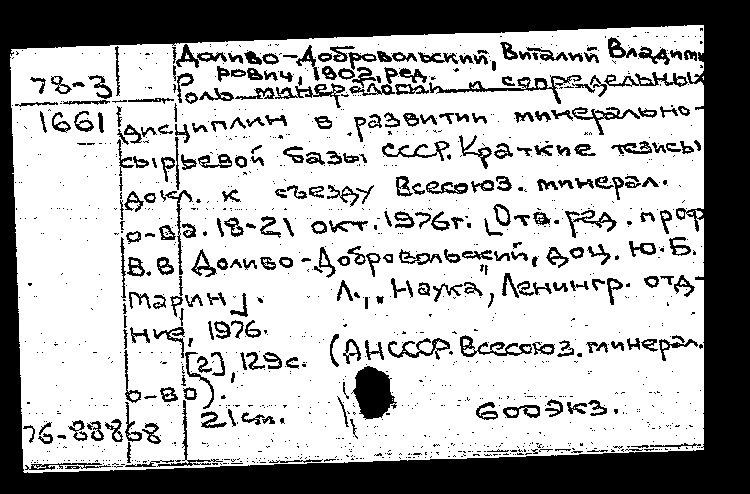 Доливо-Добровольский, Виталий Владими
рович, 1902, ред.
78-3
оль минералогии и сопредельных
1661 дисциплин в развитии минерально-
сырьевой базы СССР. Краткие тезисы
докл. к съезду Всесоюз. минерал.
о-ва. 18-21 окт. 1976г. [Отв. ред. проф
В.В Доливо-Добровольский, доц. Ю.Б.
Марин]. Л., "Наука", Ленингр. отд-
ние, 1976.
[2], 129 с. (АН СССР. Всесоюз. минерал.
о-во).
21 см. 600 экз.
76-88868